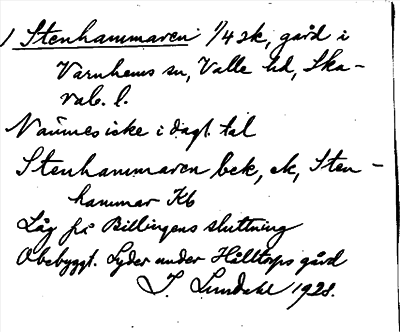 1 Stenhammaren 1/4 sk, gård i
Varnhems sn, Valle hd, Ska-
rab. l.
Nämnes icke i dagl. tal
Stenhammaren bek, ek, Sten-
hammar Kb
Låg på Billingens sluttning
Obebyggt. Lyder under Hålltorps gård
I. Lundahl 1928.